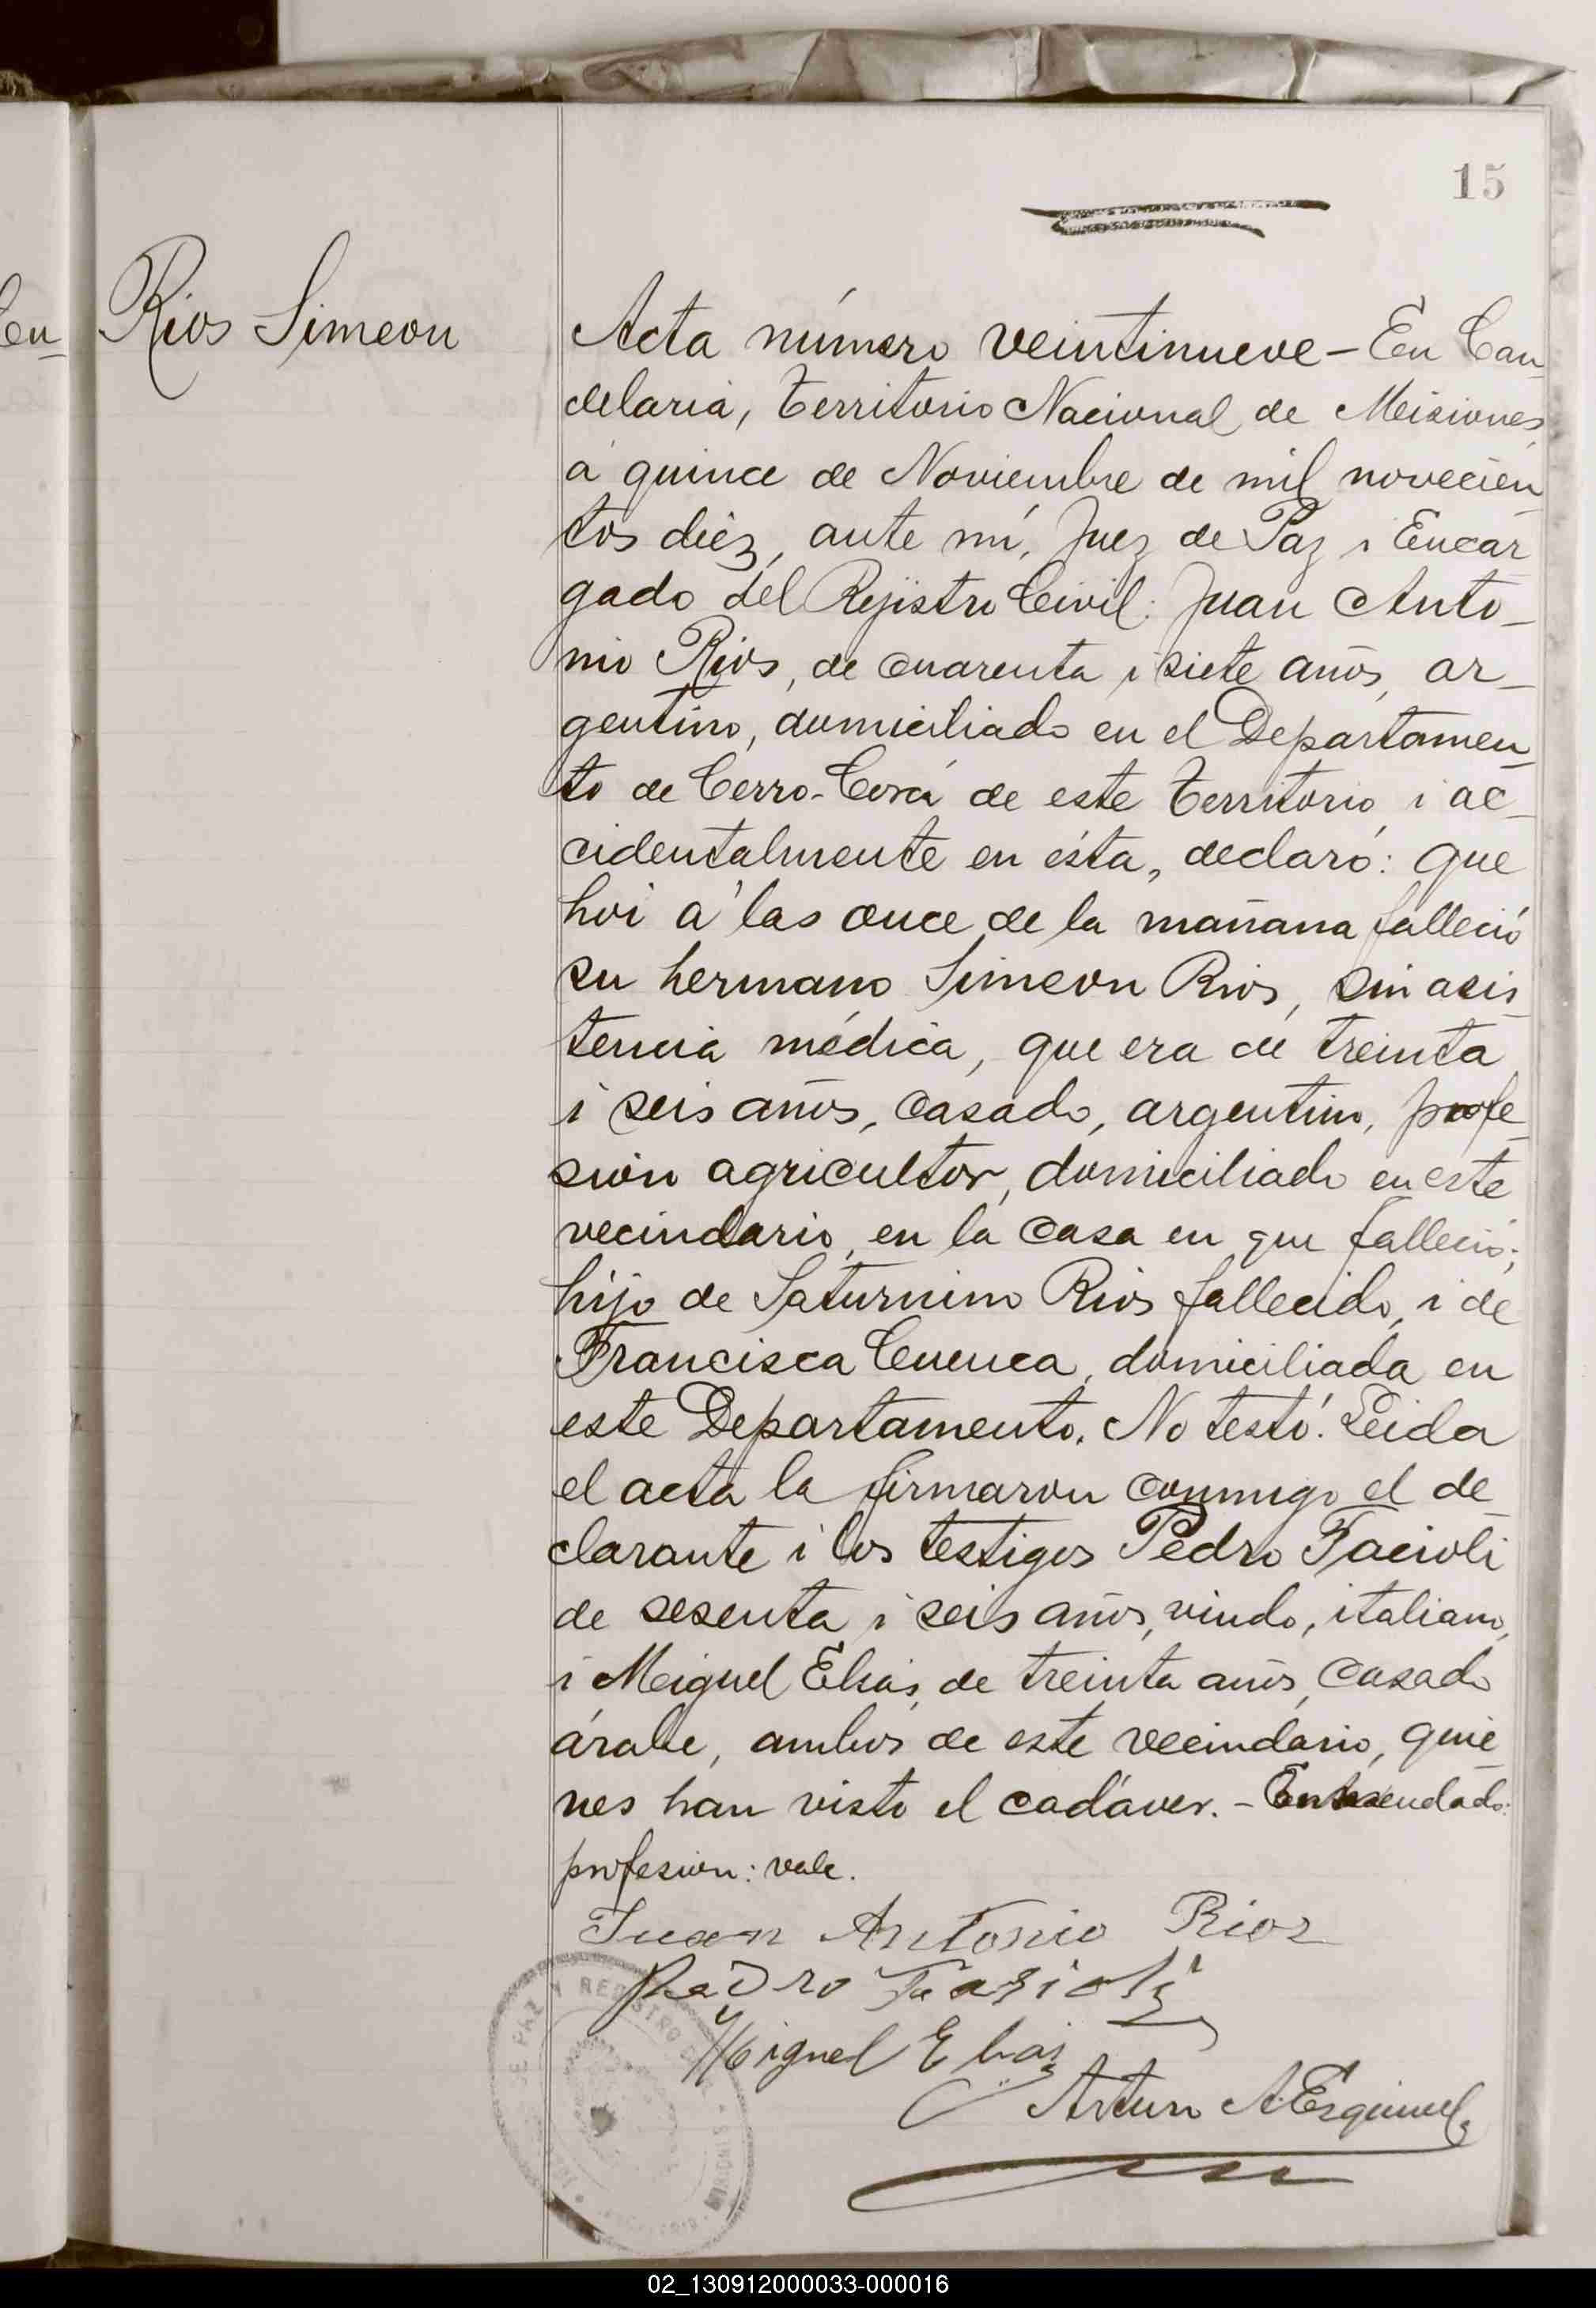 15
en
Rios Simeon
Acta número veintinueve - En Can
delaria, Territorio Nacional de Misiones,
á quince de Noviembre de mil novecien
tos diez, ante mí, Juez de Paz i Encar
gado del Rejistro Civil: Juan Anto-
nio Rios, de cuarenta i siete años, ar-
gentino, domiciliado en el Departamen
to de Cerro-Corá de este Territorio i ac-
cidentalmente en ésta, declaró: que
hoi á las once de la mañana falleció
su hermano Simeon Rios, sin asis
tencia médica, que era de treinta
i seis años, casado, argentino, profe
sión agricultor, domiciliado en este
vecindario, en la casa en que falleció;
hijo de Saturnino Rios fallecido, i de
Francisca Cuenca, domiciliada en
este Departamento. No testó. Leida
el acta la firmaron conmigo el de
clarante i los testigos Pedro Facioli
de sesenta i seis años, viudo, italiano,
i Miguel Elias, de treinta años, casado
árabe, ambos de este vecindario, quie
nes han visto el cadáver. - Enmendado:
profesion: vale.
Juan Antonio Rios
Pedro Fasioli
Miguel Elias
Arturo A. Esquivel
DE PAZ Y REGISTRO
MISIONES
02_130912000033-000016